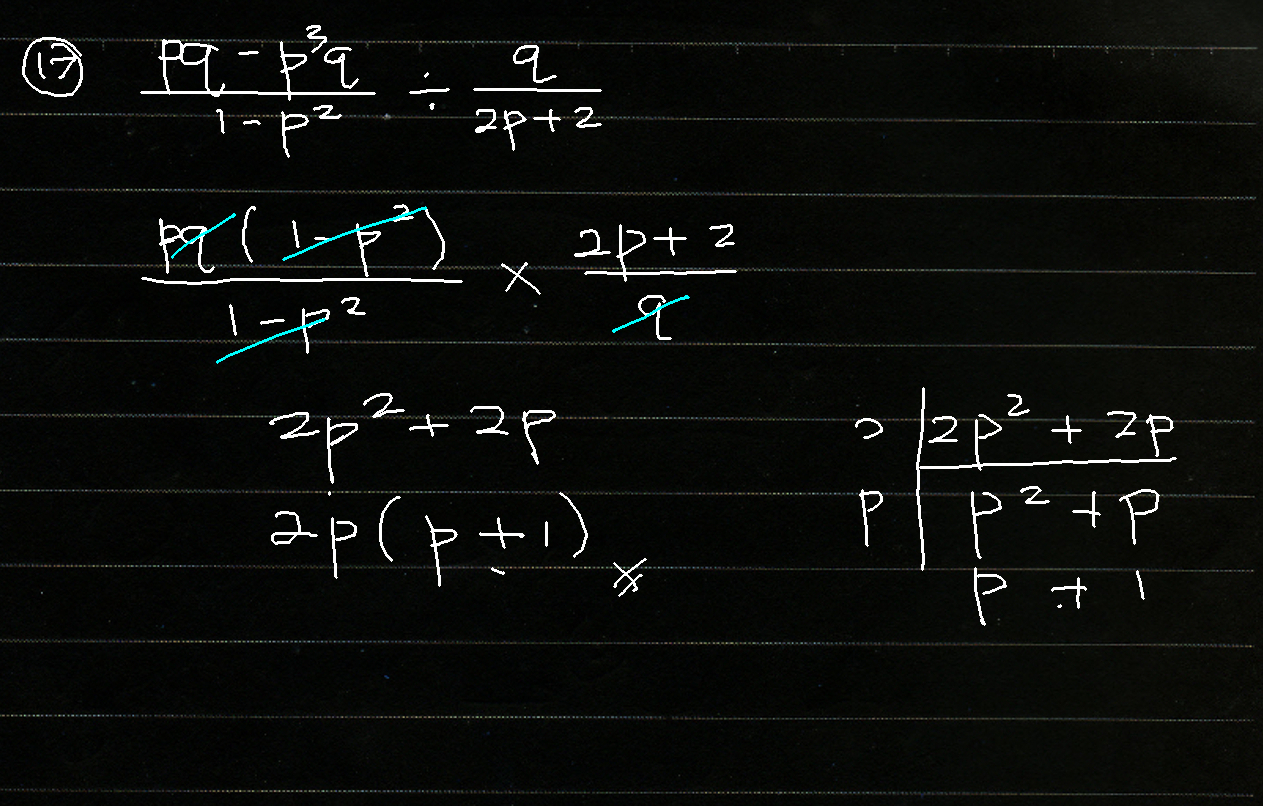 ⑰ (pq - p³q)/(1 - p²) ÷ q/(2p + 2)
pq(1 - p²)/(1 - p²) × (2p + 2)/q
2p² + 2p
2p(p + 1)
2 | 2p² + 2p
p | p² + p
p + 1